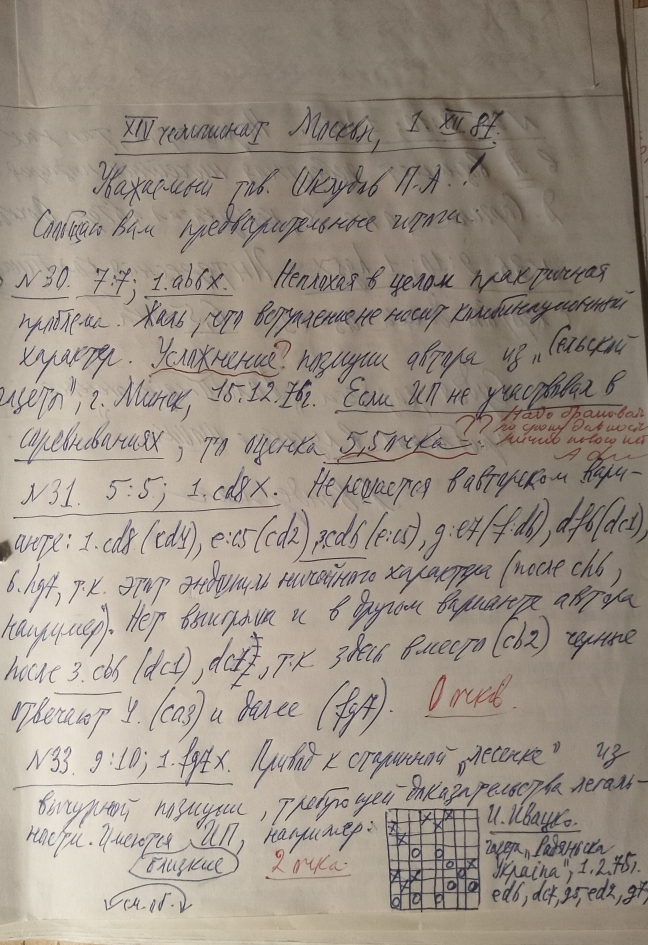 XIV чемпионат Москвы, 1. XII 87.
Уважаемый тов. Шклудов П.А.!
Сообщаю Вам предварительные итоги
№30. 7:7; 1.ab6X. Неплохая в целом практичная
проблема. Жаль, что вступление не носит комбинационный
характер. Усложнение? позиции автора из „Сельской
газеты", г. Минск, 15.12.76г. Если ИП не участвовал в
соревнованиях, то оценка 5,5 очка
Надо браковать
по сроку давности
№31. 5:5; 1.cd8X. Не решается в авторском вари-
анте: 1.cd8 (ed4), e:c5 (cd2), 3.cd6 (e:c5), g:e7 (f:d6), df6 (dc1),
6.hg7, т.к. этот эндшпиль ничейного характера (после ch6,
например). Нет выигрыша и в другом варианте автора
после 3.cb6 (dc1), т.к. здесь вместо (cb2) черные
отвечают 4. (ca3) и далее (fg7). 0 очков.
№33. 9:10; 1.fg7X. Привод к старинной „лесенке" из
вычурной позиции, требующей доказательства легаль-
ности. Имеются ИП, например:
близкие
2 очка.
см. об.
И. Ивацко.
газета „Радянська
Україна", 1.2.75г.
ed6, dc7, g5, ed2, g7,